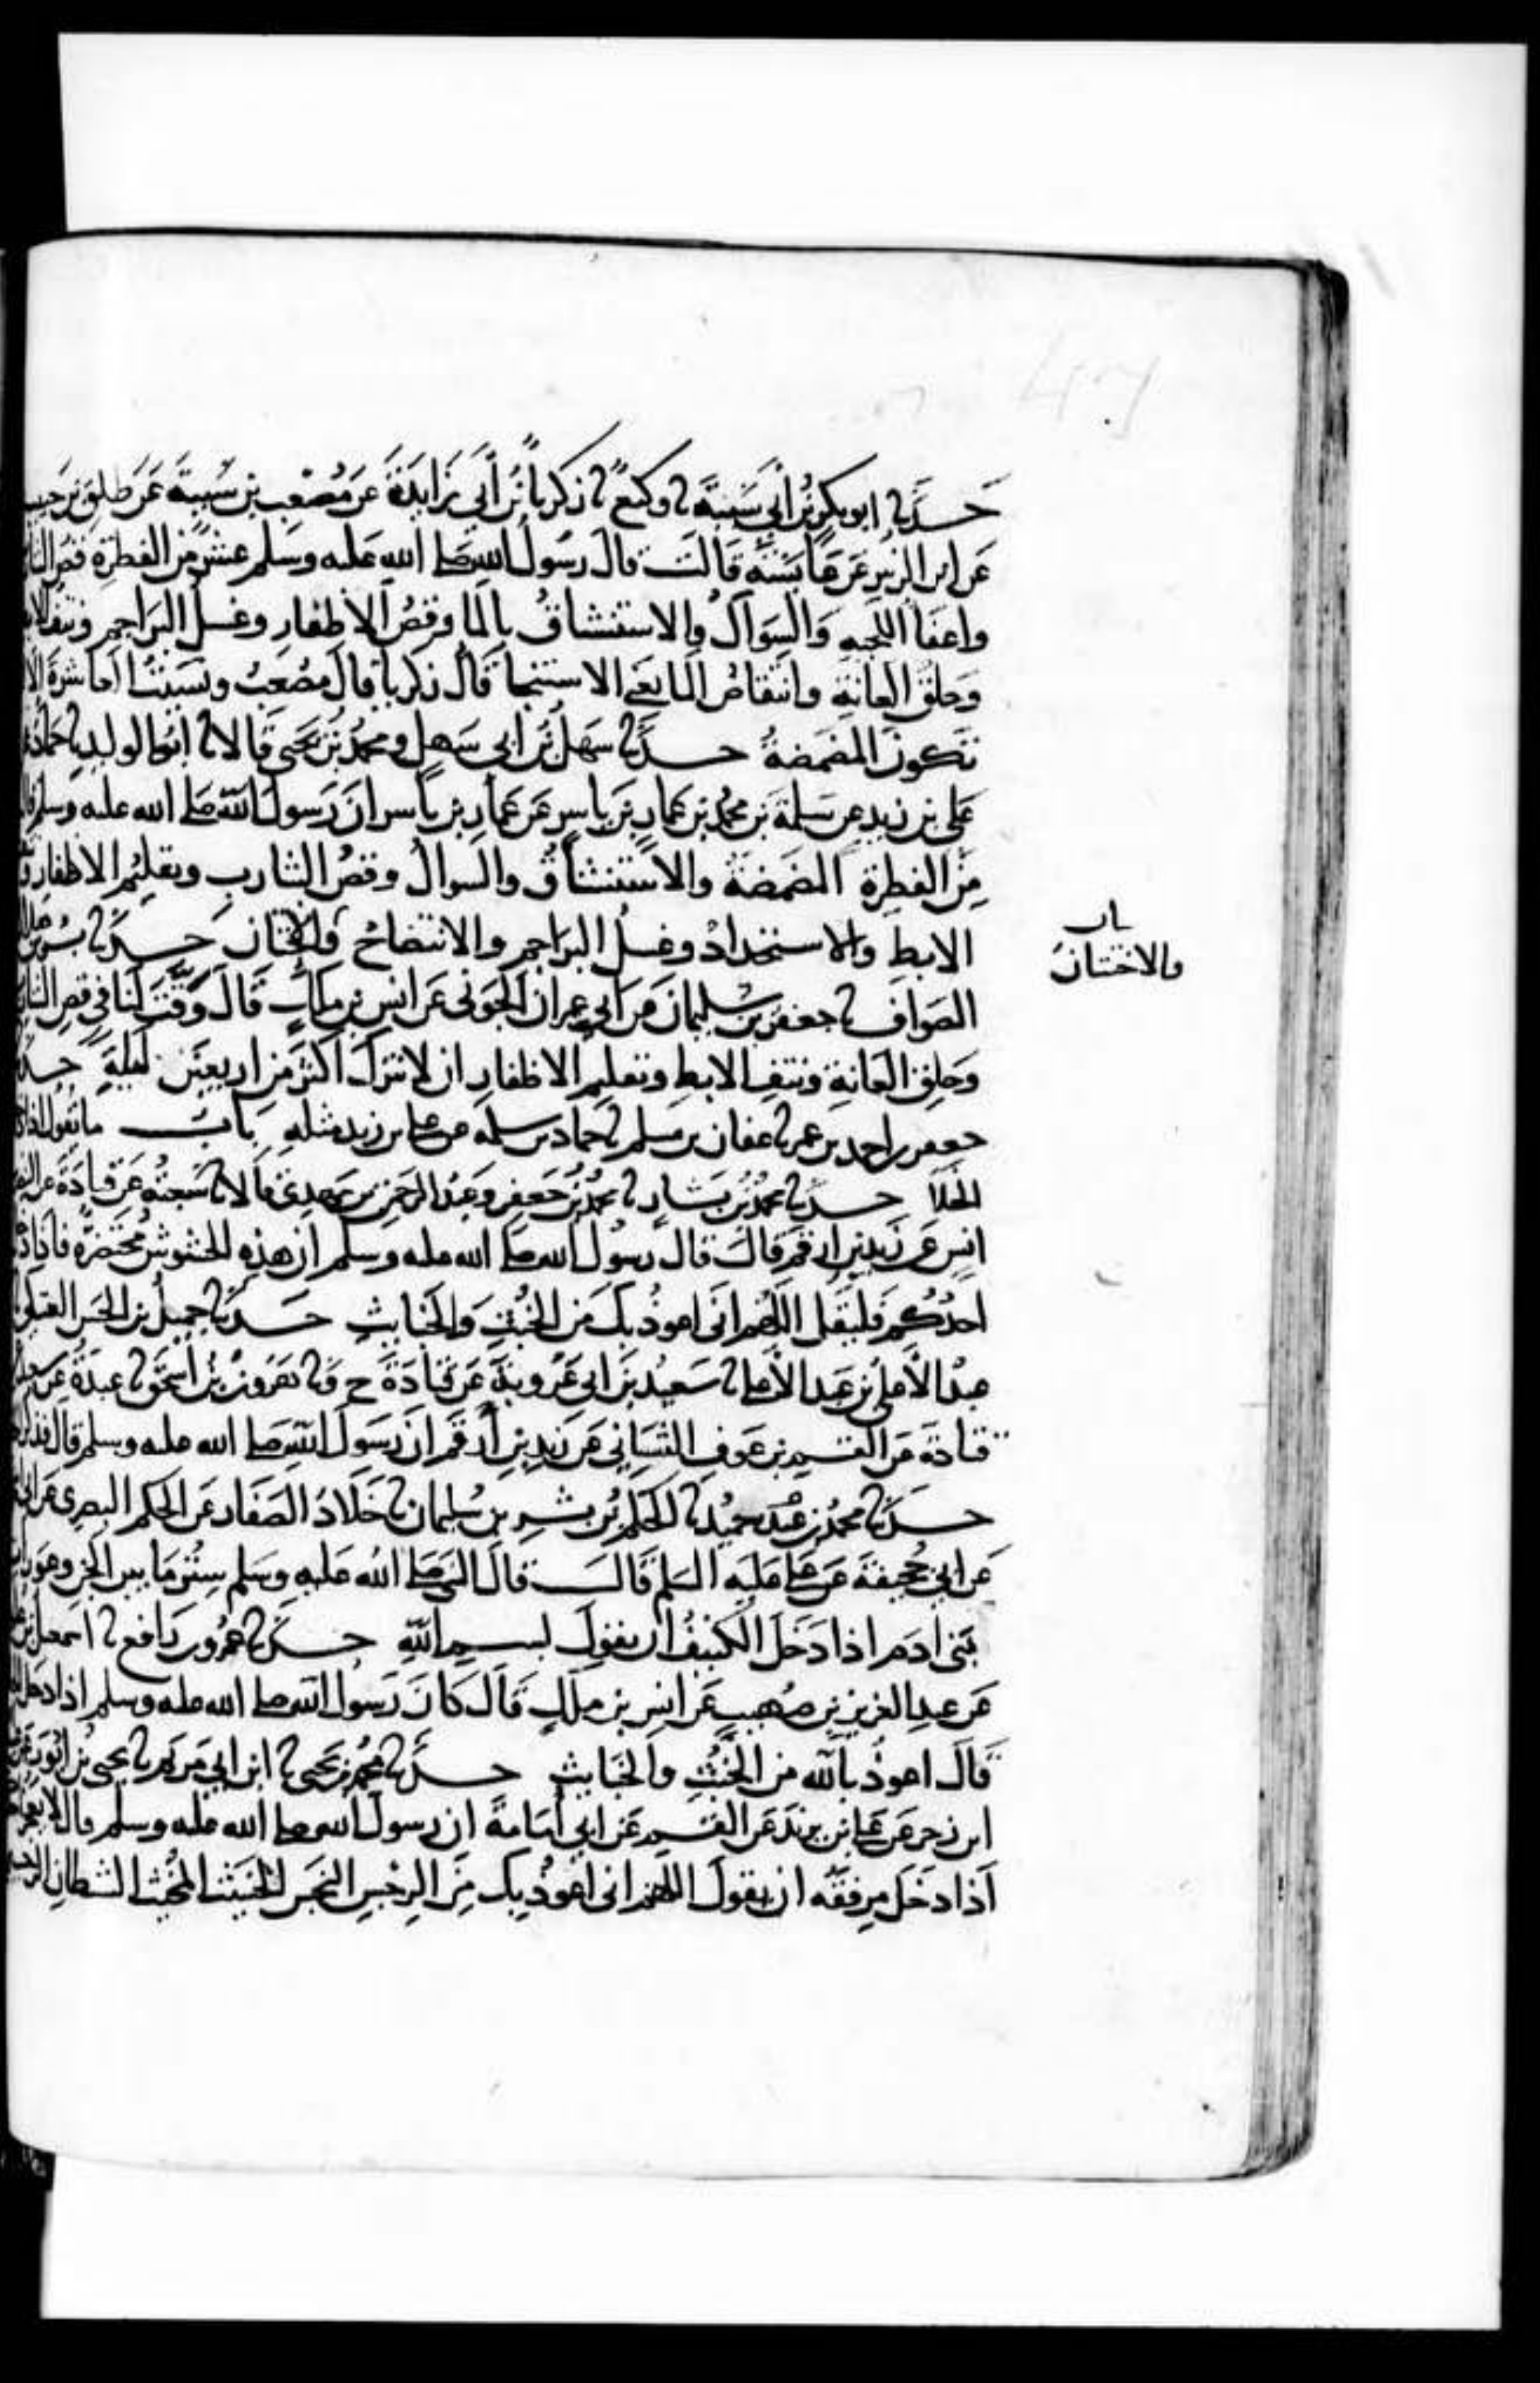 حدثنا ابو بكر بن أبي شيبة نا وكيع نا زكريا بن أبي زايدة عن مصعب بن شيبة عن طلق بن حبيب
عن ابن الزبير عن عايشة قالت قال رسول الله صلى الله عليه وسلم عشر من الفطرة قص
واعفا اللحية والسواك والاستنشاق بالما وقص الاظفار وغسل البراجم ونتف
وحلق العانة وانتقاص الما يعني الاستنجا قال زكريا قال مصعب ونسيت العاشرة
تكون المضمضة حدثنا سهل بن ابي سهل ومحمد بن يحيى قالا نا ابو الوليد نا حماد
علي بن زيد عن سلمة بن محمد بن عمار بن ياسر عن عمار بن ياسر ان رسول الله صلى الله عليه وسلم
من الفطرة المضمضة والاستنشاق والسواك وقص الشارب وتقليم الاظفار
الابط والاستحداد وغسل البراجم والانتضاح والاختتان حدثنا بشر بن هلال
باب
والاختتان
الصواف نا جعفر بن سليمان عن ابي عمران الجوني عن انس بن مالك قال وقت لنا في قص
وحلق العانة ونتف الابط وتقليم الاظفار ان لا نترك اكثر من اربعين ليلة حدثنا
جعفر بن احمد بن عمر نا عفان بن مسلم نا حماد بن سلمة عن علي بن زيد مثله باب ما يقول اذا
الخلا حدثنا محمد بن بشار نا محمد بن جعفر وعبد الرحمن بن مهدي قالا نا شعبة عن قتادة عن
انس عن زيد بن ارقم قال قال رسول الله صلى الله عليه وسلم ان هذه الحشوش محتضرة فاذا
احدكم فليقل اللهم اني اعوذ بك من الخبث والخبايث حدثنا جميل بن الحسن العتكي
عبد الأعلى بن عبد الأعلى نا سعيد بن ابي عروبة عن قتادة ح ونا هرون بن اسحق نا عبدة عن
قتادة عن القسم بن عوف الشيباني عن زيد بن أرقم ان رسول الله صلى الله عليه وسلم قال فذكر
حدثنا محمد بن حميد نا الحكم بن بشير بن سليمان نا خلاد الصفار عن الحكم البصري عن ابي
عن ابي جحيفة عن علي عليه السلم قال قال النبي صلى الله عليه وسلم ستر ما بين الجن وعورات
بني ادم اذا دخل الكنيف ان يقول بسم الله حدثنا عمرو بن رافع نا اسمعيل بن
عن عبد العزيز بن صهيب عن انس بن ملك قال كان رسول الله صلى الله عليه وسلم اذا دخل
قال اعوذ بالله من الخبث والخبايث حدثنا محمد بن يحيى نا ابن ابي مريم نا يحيى بن ايوب عن
ابن زحر عن علي بن يزيد عن القسم عن ابي أمامة ان رسول الله صلى الله عليه وسلم قال لا يعجز
اذا دخل مرفقه ان يقول اللهم اني اعوذ بك من الرجس النجس الخبيث المخبث الشيطان الرجيم